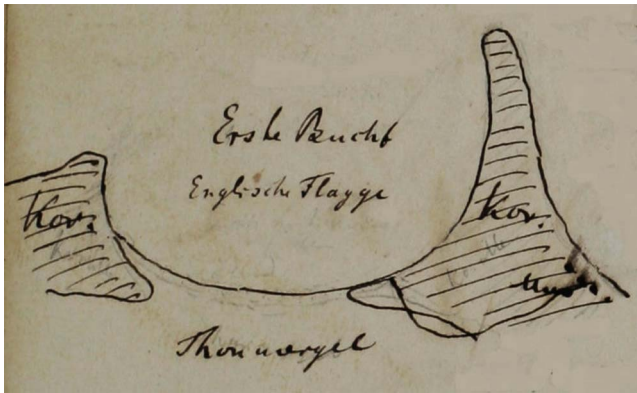 Erste Bucht
Englische Flagge
Kor.
Kor.
Thonmergel